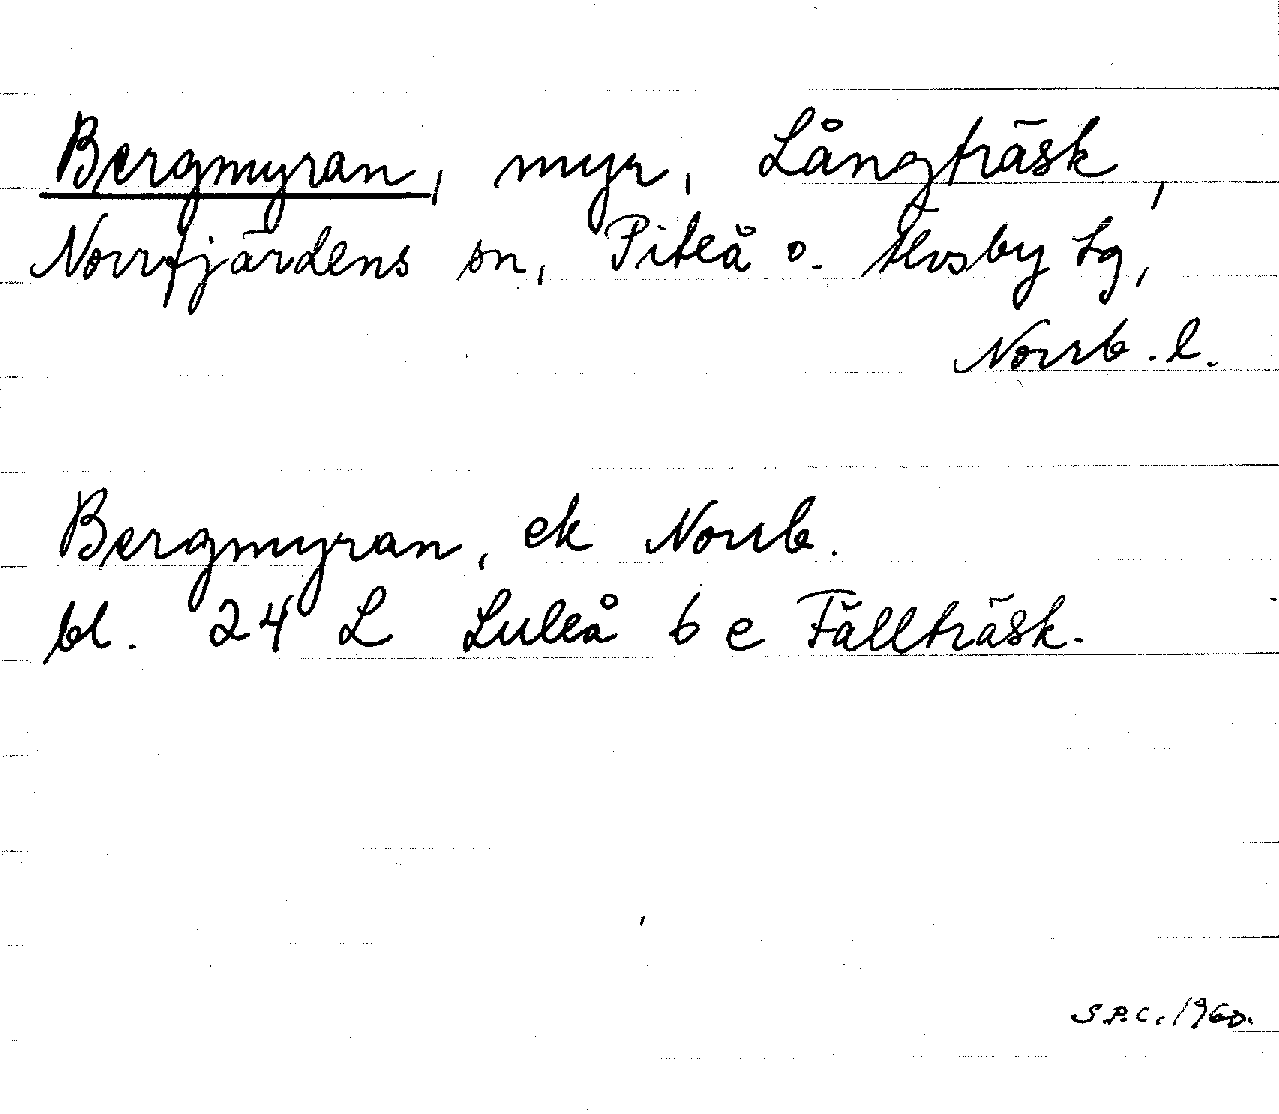 Bergmyran, myr, Långträsk,
Norrfjärdens sn, Piteå o. Älvsby tg,
Norrb. l.
Bergmyran, ek Norrb.
bl. 24 L Luleå 6 e Fällträsk.
S.P.C. 1960.